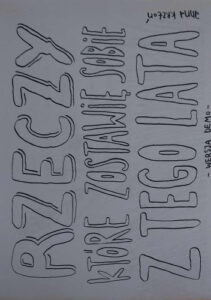 ANNA KRZTOŃ
RZECZY
KTÓRE ZOSTAWIĘ SOBIE
Z TEGO LATA
- WERSJA DEMO -